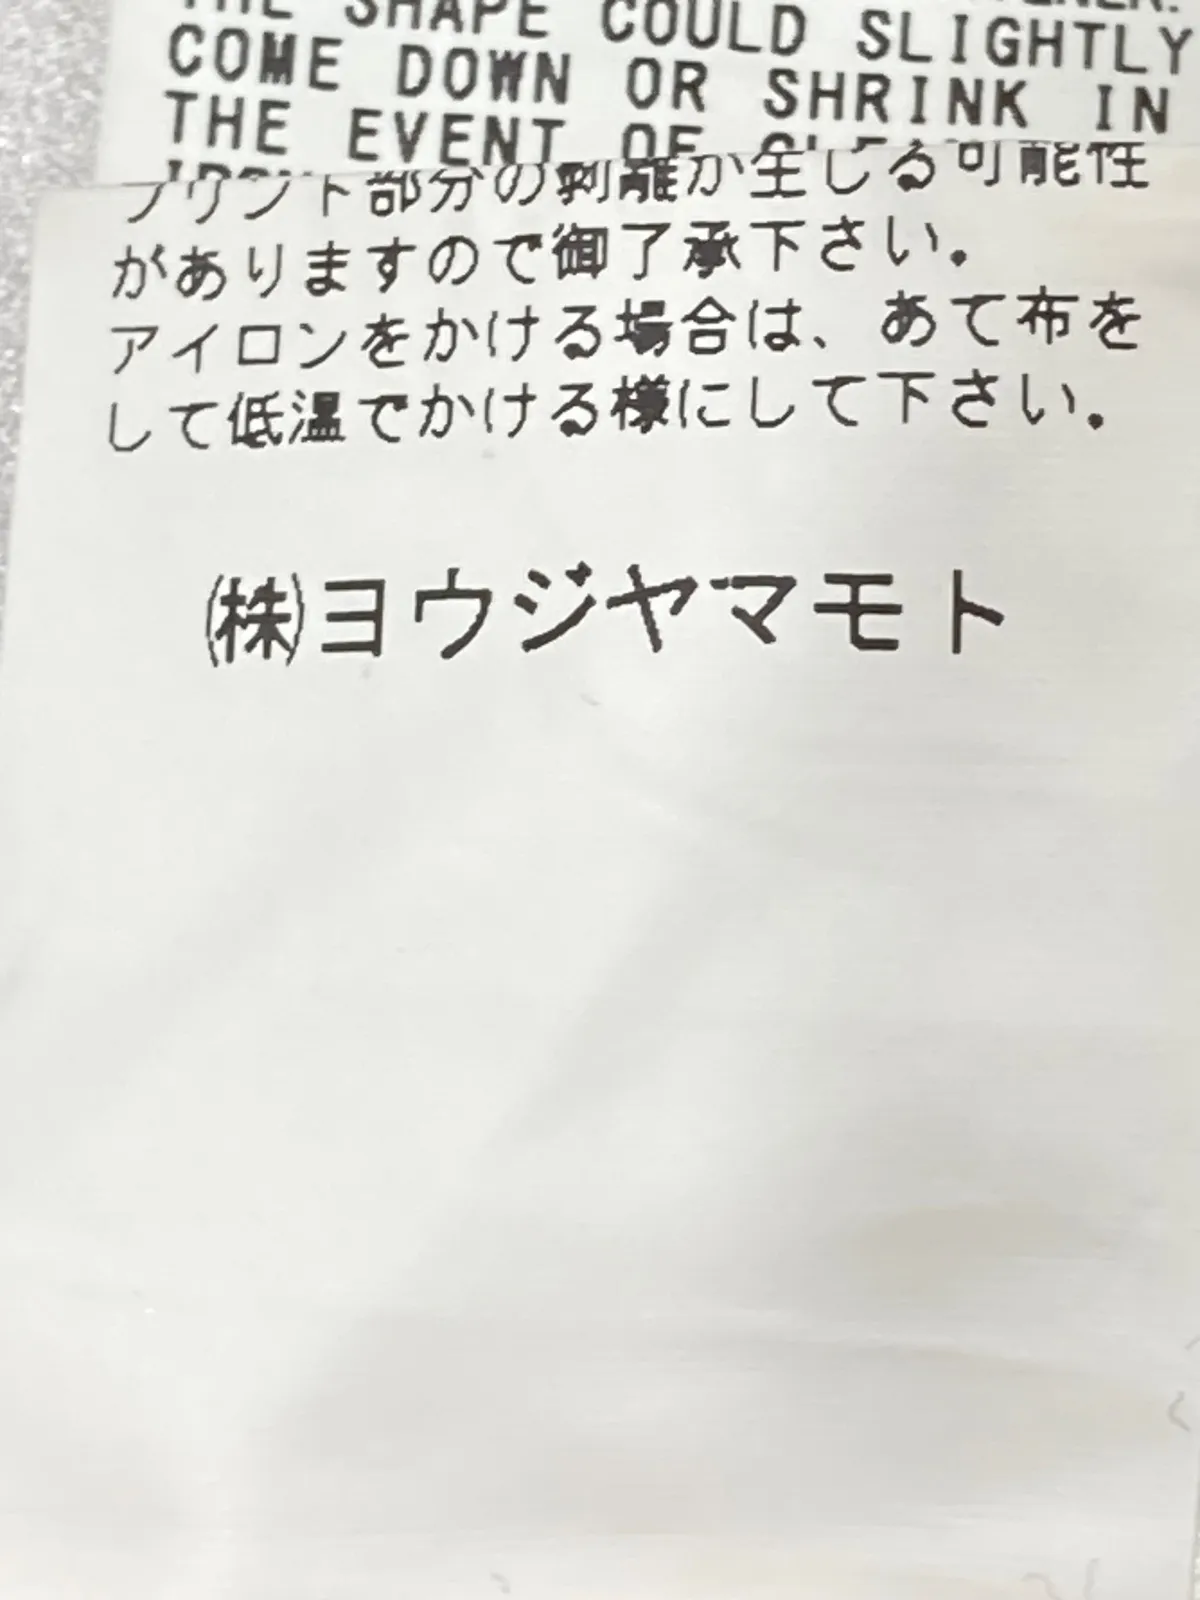 THE SHAPE COULD SLIGHTLY
COME DOWN OR SHRINK IN
THE EVENT OF
プリント部分の剥離が生じる可能性
がありますので御了承下さい。
アイロンをかける場合は、あて布を
して低温でかける様にして下さい。
㈱ヨウジヤマモト